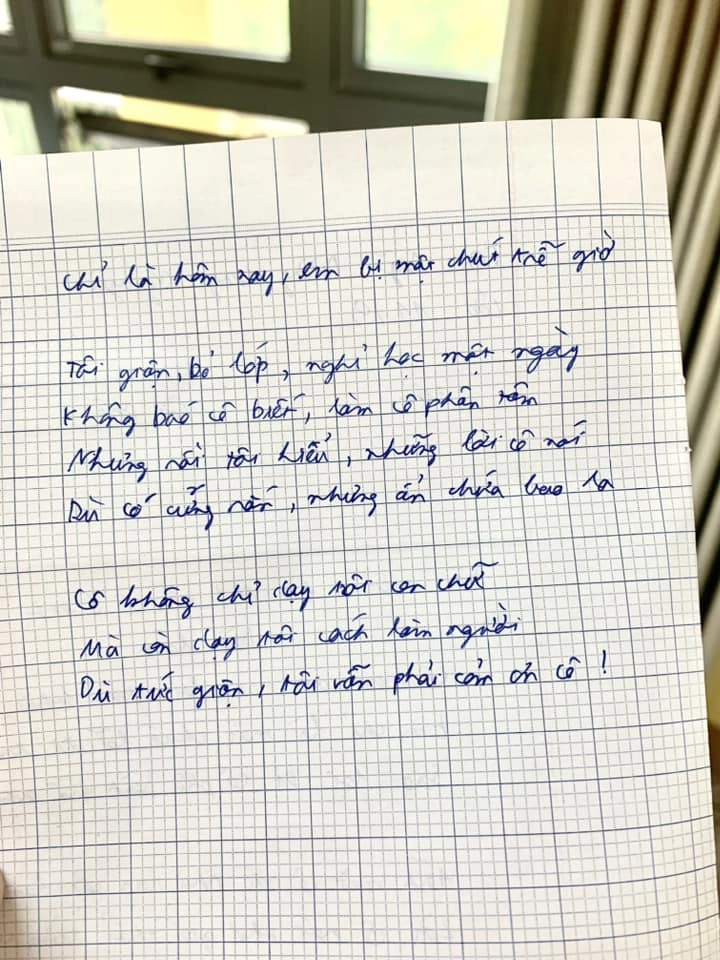 Chỉ là hôm nay, em bị một chút trễ giờ
Tôi giận, bỏ lớp, nghỉ học một ngày
Không báo cô biết, làm cô phân tâm
Nhưng rồi tôi hiểu, những lời cô nói
Dù có cứng rắn, nhưng ẩn chứa bao la
Cô không chỉ dạy tôi con chữ
Mà còn dạy tôi cách làm người
Dù tức giận, tôi vẫn phải cảm ơn cô !